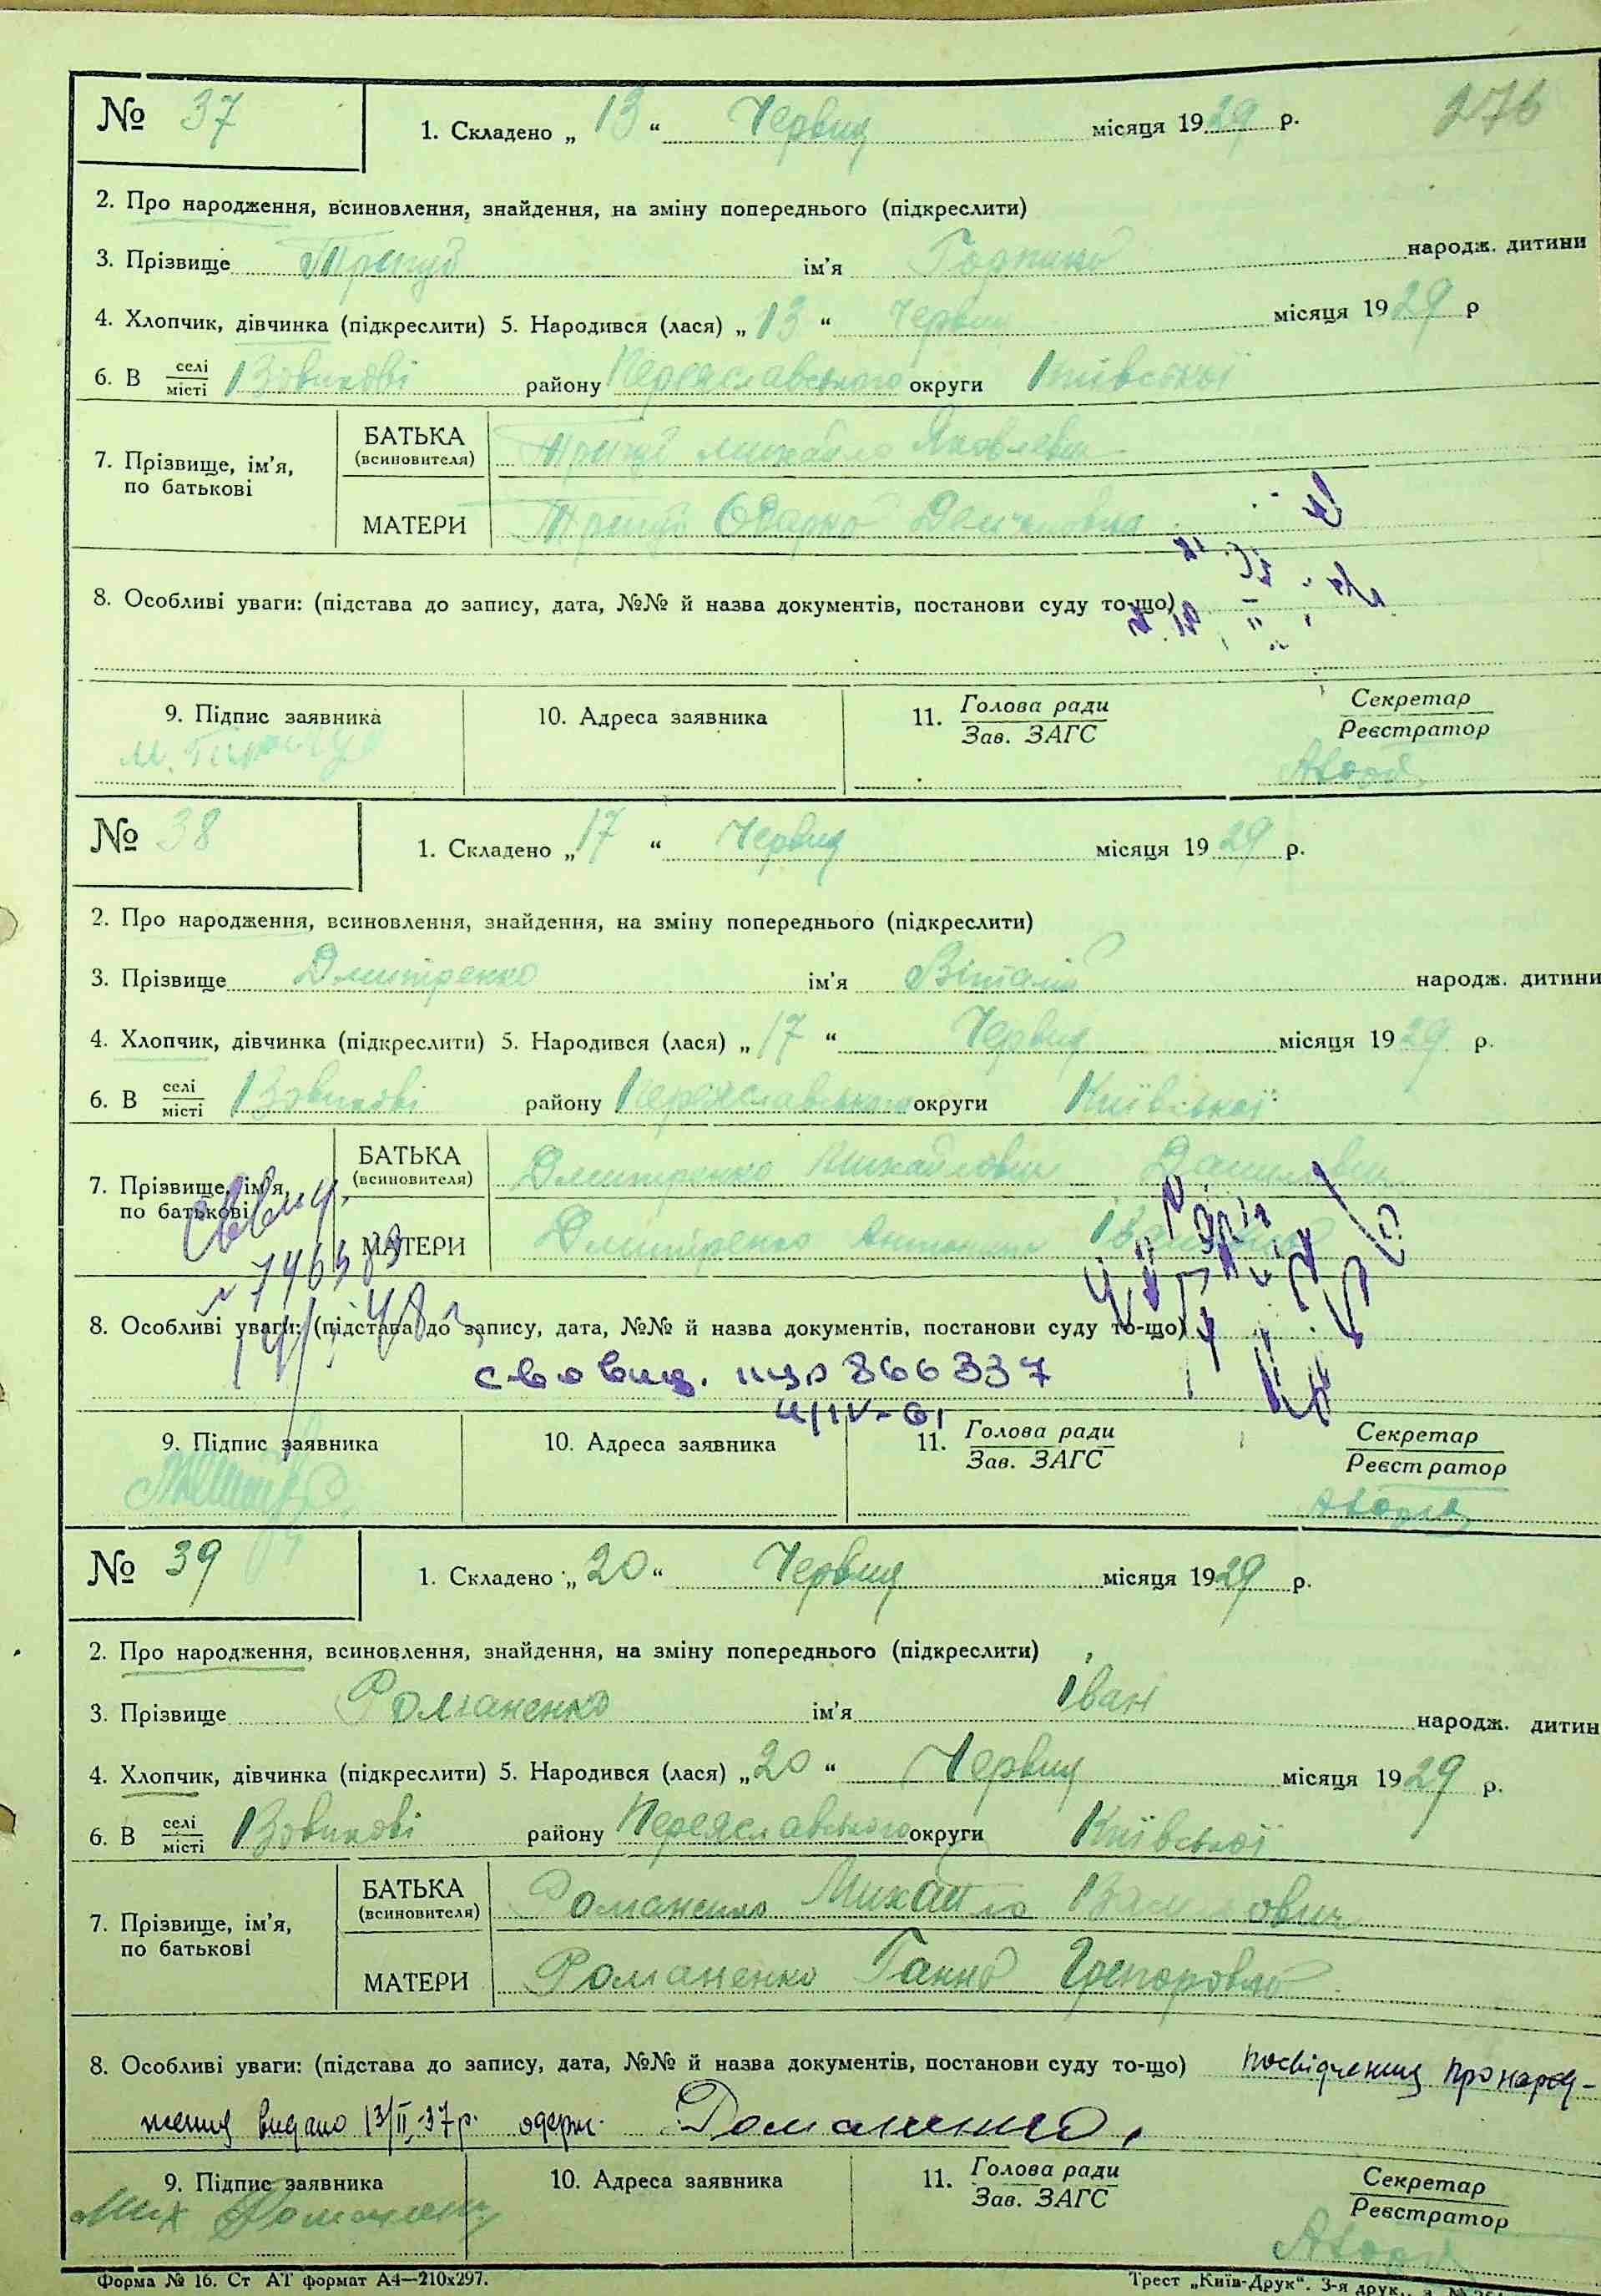 № 37
1. Складено „ 13 “ Червня місяця 1929 р. 276
2. Про народження, всиновлення, знайдення, на зміну попереднього (підкреслити)
3. Прізвище Тригуб ім'я Горпина народж. дитини
4. Хлопчик, дівчинка (підкреслити) 5. Народився (лася) „ 13 “ Червня місяця 1929 р
6. В селі/місті Вовчкові району Переяславського округи Київської
7. Прізвище, ім'я, по батькові
БАТЬКА (всиновителя) Тригуб Михайло Яковлевич
МАТЕРИ Тригуб Одарка
8. Особливі уваги: (підстава до запису, дата, №№ й назва документів, постанови суду то-що)
9. Підпис заявника 10. Адреса заявника 11. Голова ради/Зав. ЗАГС Секретар/Реєстратор
№ 38
1. Складено „ 17 “ Червня місяця 1929 р.
2. Про народження, всиновлення, знайдення, на зміну попереднього (підкреслити)
3. Прізвище Дмитренко ім'я Віталій народж. дитини
4. Хлопчик, дівчинка (підкреслити) 5. Народився (лася) „ 17 “ Червня місяця 1929 р.
6. В селі/місті Вовчкові району Переяславського округи Київської
7. Прізвище, ім'я, по батькові
БАТЬКА (всиновителя) Дмитренко Михайлович Данилович
МАТЕРИ Дмитренко Антонина Іванівна
8. Особливі уваги: (підстава до запису, дата, №№ й назва документів, постанови суду то-що)
866337
4/IV-61
9. Підпис заявника 10. Адреса заявника 11. Голова ради/Зав. ЗАГС Секретар/Реєстратор
№ 39
1. Складено „ 20 “ Червня місяця 1929 р.
2. Про народження, всиновлення, знайдення, на зміну попереднього (підкреслити)
3. Прізвище Романенко ім'я Іван народж. дитин
4. Хлопчик, дівчинка (підкреслити) 5. Народився (лася) „ 20 “ Червня місяця 1929 р.
6. В селі/місті Вовчкові району Переяславського округи Київської
7. Прізвище, ім'я, по батькові
БАТЬКА (всиновителя) Романенко Михайло Васильович
МАТЕРИ Романенко Ганна Григоровна
8. Особливі уваги: (підстава до запису, дата, №№ й назва документів, постанови суду то-що) посвідчення про народ-
ження видано 13/II-37 р. одерж. Романенко
9. Підпис заявника 10. Адреса заявника 11. Голова ради/Зав. ЗАГС Секретар/Реєстратор
Мих Романенко
Форма № 16. Ст АТ формат А4—210х297. Трест „Київ-Друк“. 3-я друк.